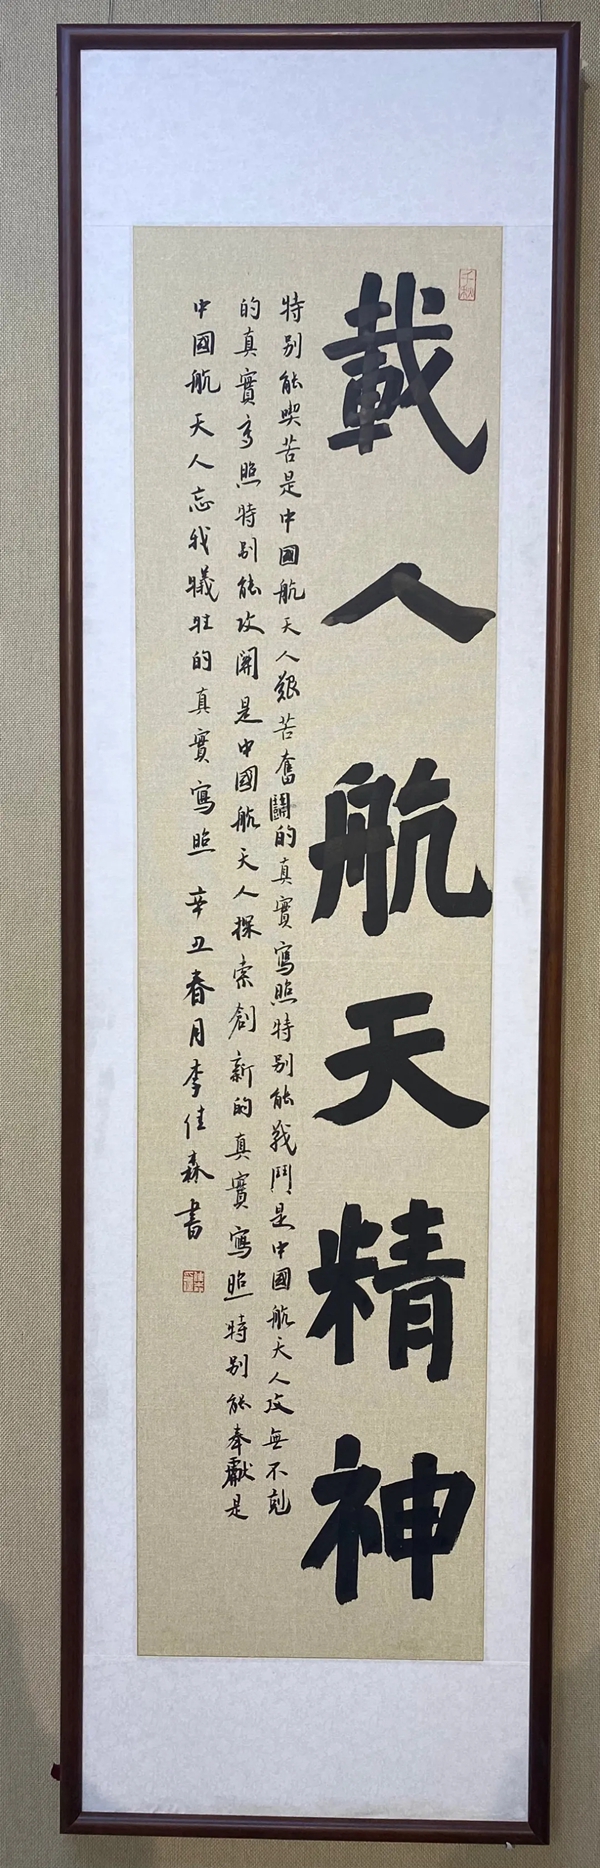 載人航天精神
特别能喫苦是中國航天人艱苦奮鬭的真實寫照特别能戰鬥是中國航天人攻無不剋
的真實寫照特别能攻關是中國航天人探索創新的真實寫照特别能奉獻是
中國航天人忘我犧牲的真實寫照 辛丑春月李佳森書
千秋